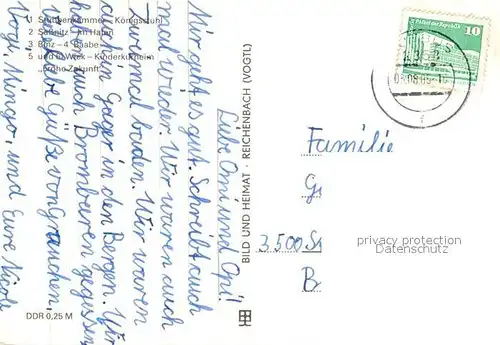 1 Stubbenkammer - Königsstuhl
2 Saßnitz - Im Hafen
3 Binz - 4 Baabe
5 und 6 Wiek - Kinderkurheim
„Frohe Zukunft"
Liebe Omi und Opi!
Mir geht es gut. Schreibt auch
mal wieder. Wir waren auch
zweimal baden. Wir waren
auch in Gager in den Bergen. Wir
haben auch Brombeeren gegessen
Viele liebe Grüße von
und Eure Nicole
BILD UND HEIMAT · REICHENBACH (VOGTL)
DDR 0,25 M
Palast der Republik
10
DDR
Familie
G
3500 S
B
privacy protection